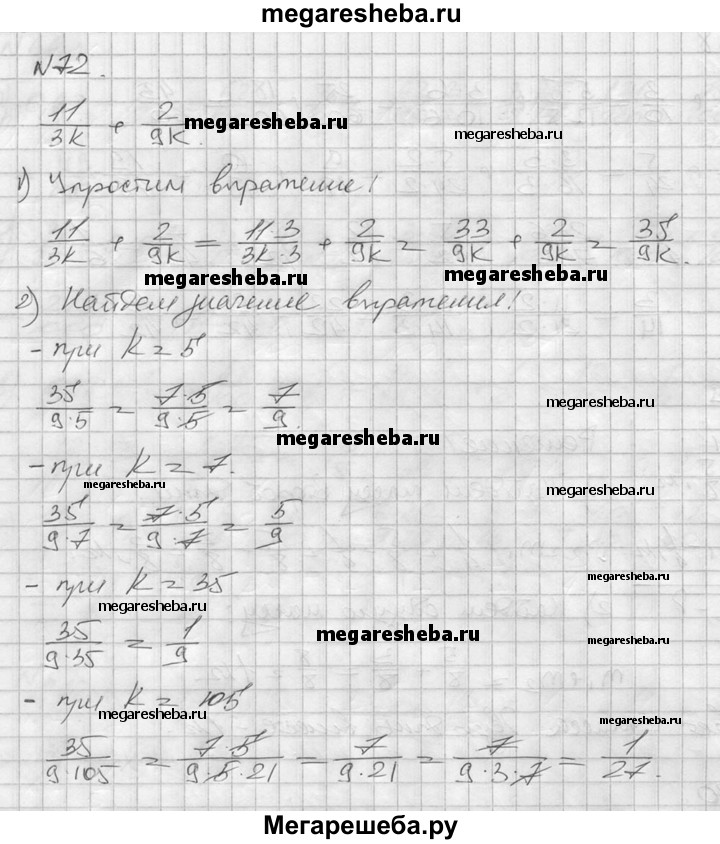 megaresheba.ru
N72.
11/3k + 2/9k. megaresheba.ru megaresheba.ru
1) Упростим выражение!
11/3k + 2/9k = 11·3/3k·3 + 2/9k = 33/9k + 2/9k = 35/9k.
megaresheba.ru megaresheba.ru
2) Найдем значение выражения!
- при k = 5
35/9·5 = 7·5/9·5 = 7/9. megaresheba.ru
megaresheba.ru
- при k = 7.
megaresheba.ru megaresheba.ru
35/9·7 = 7·5/9·7 = 5/9
- при k = 35 megaresheba.ru
megaresheba.ru
35/9·35 = 1/9 megaresheba.ru
- при k = 105
megaresheba.ru megaresheba.ru
35/9·105 = 7·5/9·5·21 = 7/9·21 = 7/9·3·7 = 1/27.
Мегарешеба.ру